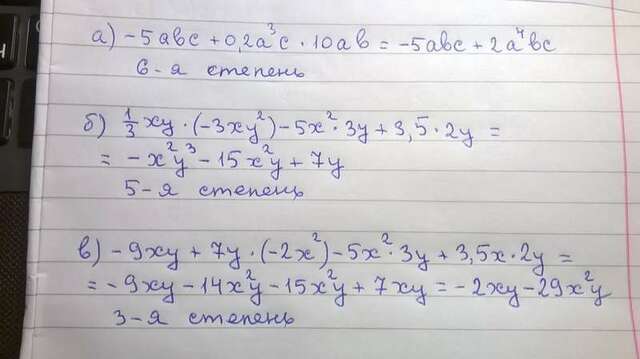 а) -5abc + 0,2a³c · 10ab = -5abc + 2a⁴bc
6-я степень
б) 1/3 xy · (-3xy²) - 5x² · 3y + 3,5 · 2y =
= -x²y³ - 15x²y + 7y
5-я степень
в) -9xy + 7y · (-2x²) - 5x² · 3y + 3,5x · 2y =
= -9xy - 14x²y - 15x²y + 7xy = -2xy - 29x²y
3-я степень